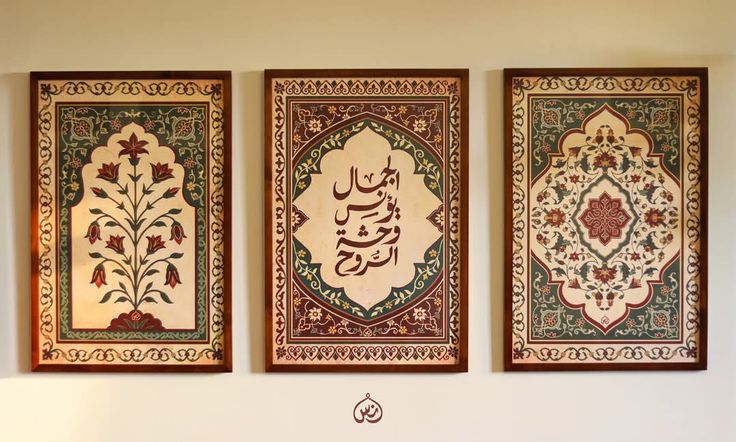 الجمال
يؤنس
وحشة
الرُّوح